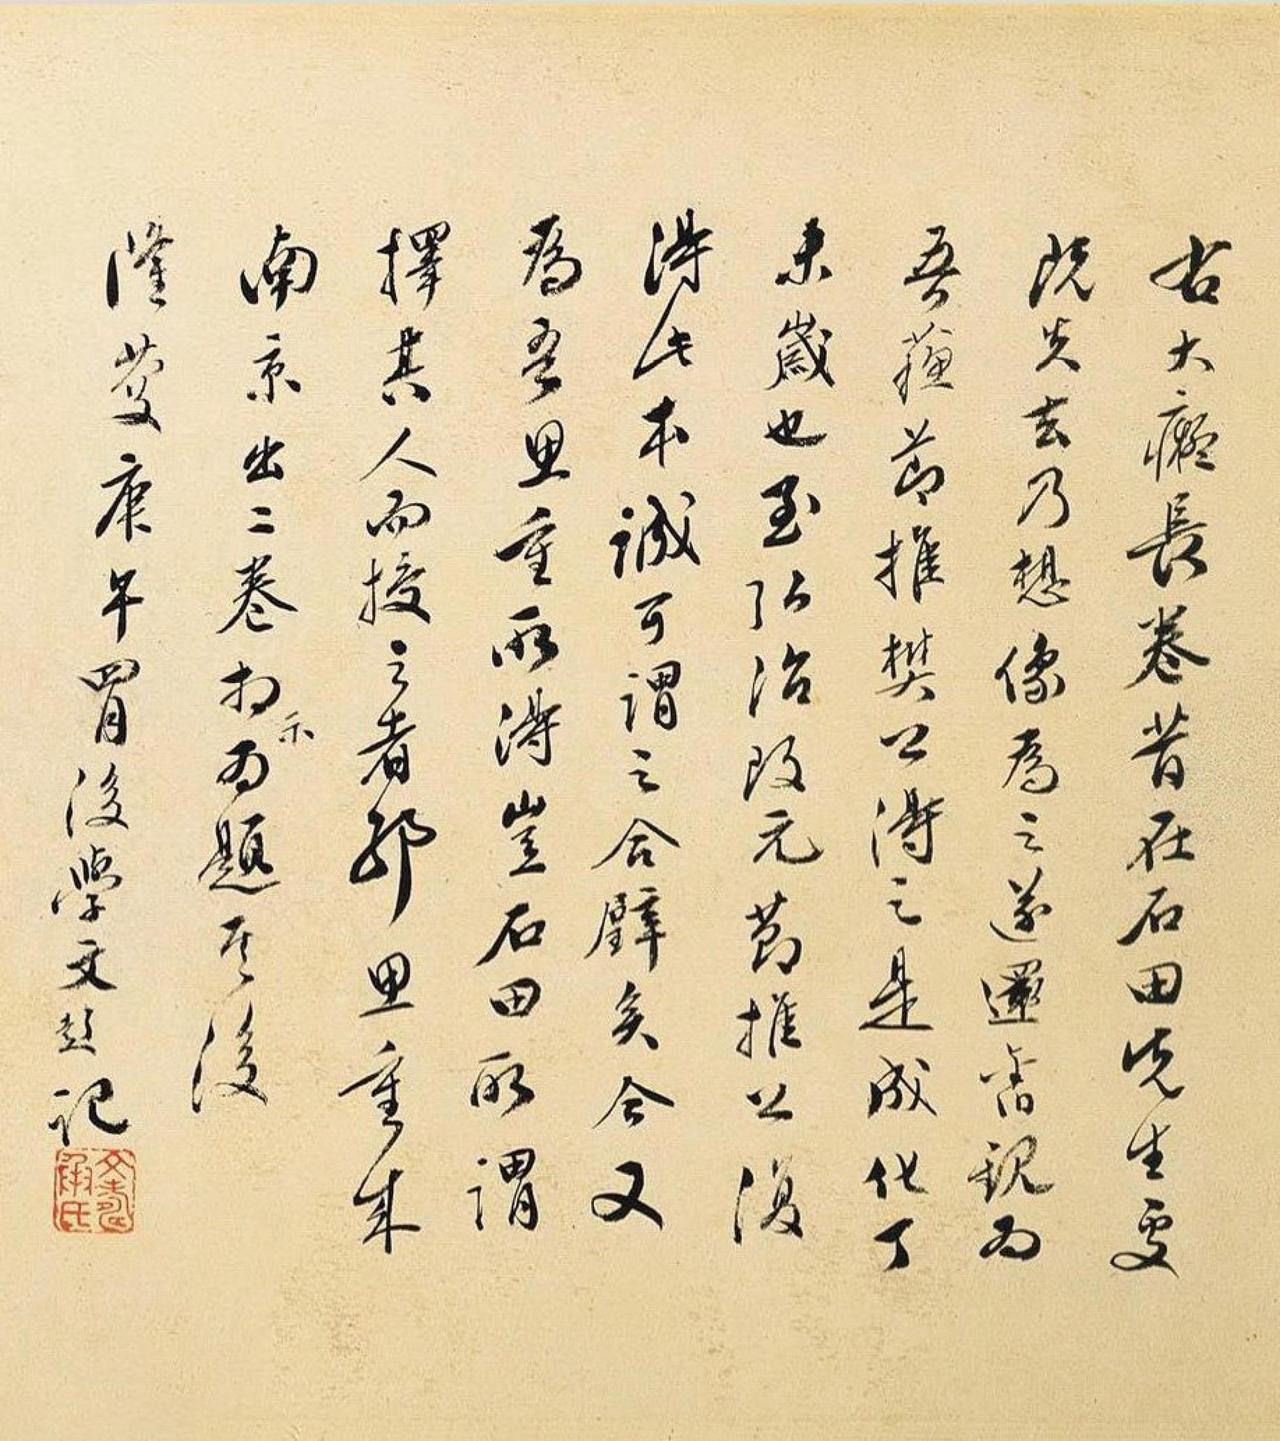 右大癡長卷昔在石田先生處
既失去乃想像為之遂還舊觀而
吾蘇節推樊公得之是成化丁
未歲也至弘治改元節推公復
得此本誠可謂之合璧矣今又
為吾思重所得豈石田所謂
擇其人而授之者耶思重來
南京出二卷相示為題其後
隆慶庚午四月後學文彭記